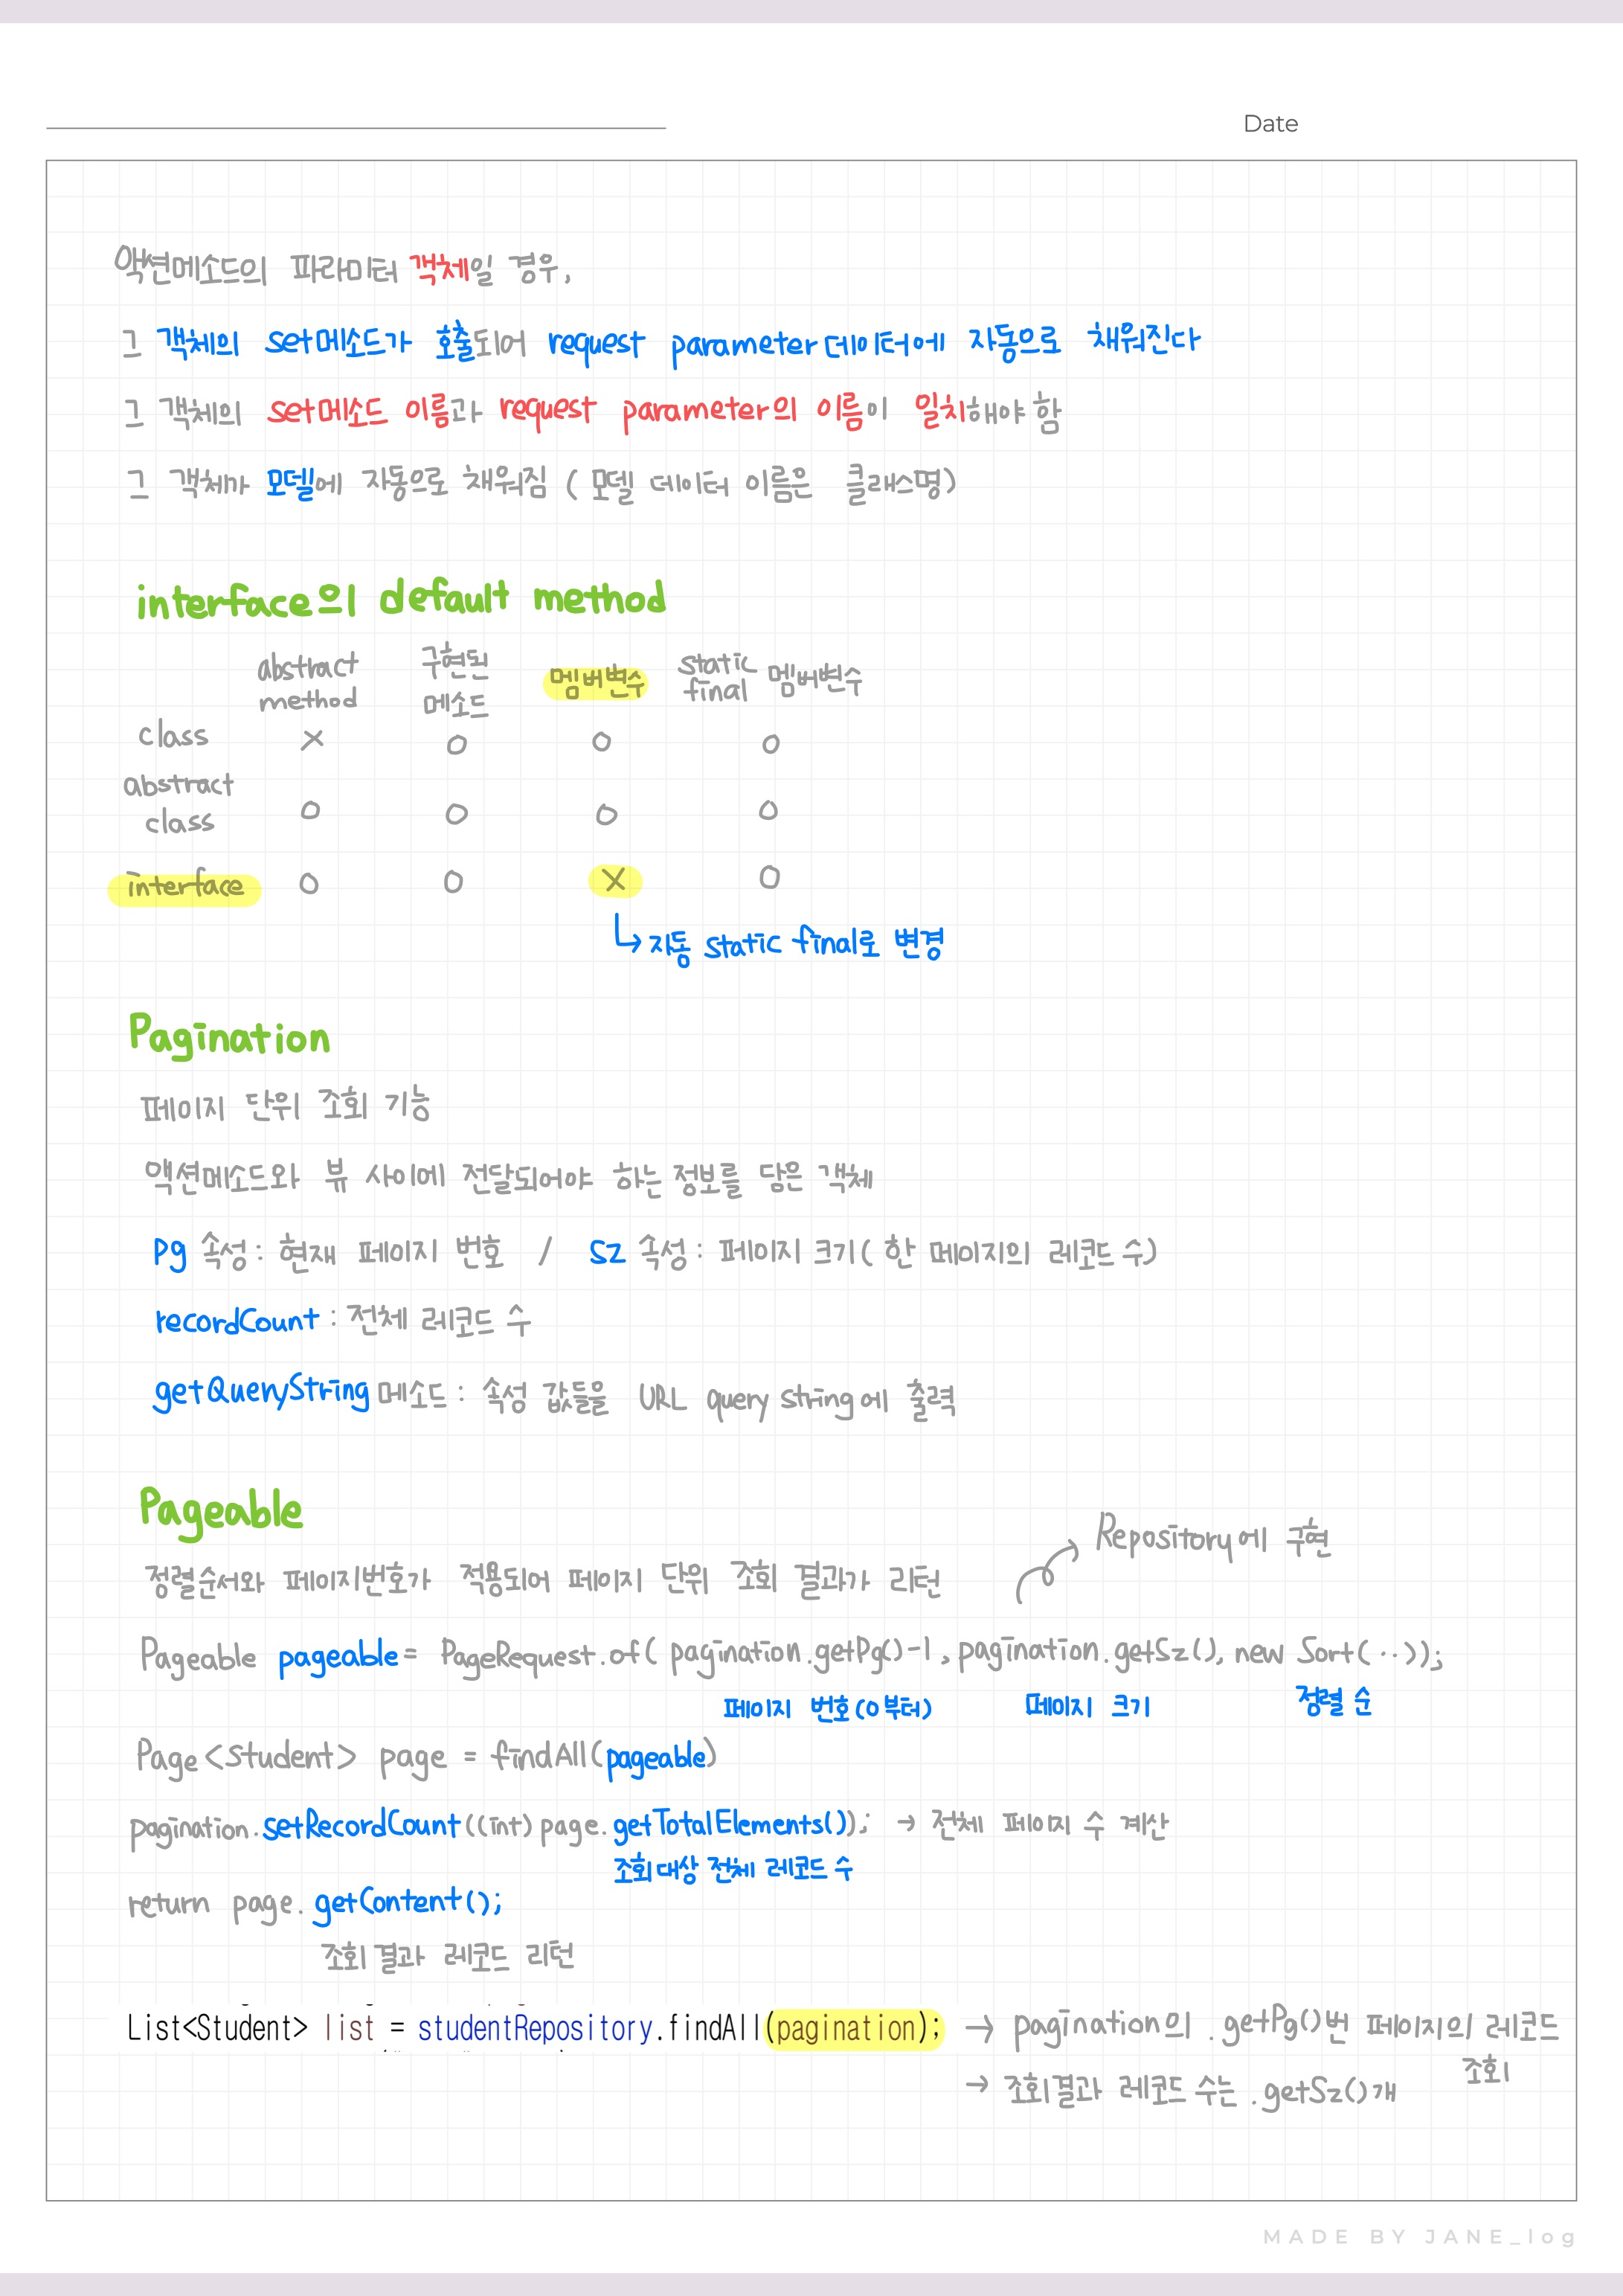 Date
액션메소드의 파라미터 객체일 경우,
그 객체의 set메소드가 호출되어 request parameter 데이터에 자동으로 채워진다
그 객체의 set메소드 이름과 request parameter의 이름이 일치해야 함
그 객체가 모델에 자동으로 채워짐 ( 모델 데이터 이름은 클래스명)
interface의 default method
abstract method 구현된 메소드 멤버변수 static final 멤버변수
class X O O O
abstract class O O O O
interface O O X O
↳ 자동 static final로 변경
Pagination
페이지 단위 조회 기능
액션메소드와 뷰 사이에 전달되어야 하는 정보를 담은 객체
pg 속성 : 현재 페이지 번호 / sz 속성 : 페이지 크기( 한 메이지의 레코드 수)
recordCount : 전체 레코드 수
getQueryString 메소드 : 속성 값들을 URL query string에 출력
Pageable
정렬순서와 페이지번호가 적용되어 페이지 단위 조회 결과가 리턴
Repository에 구현
Pageable pageable = PageRequest.of( pagination.getPg()-1, pagination.getSz(), new Sort(··));
페이지 번호(0부터) 페이지 크기 정렬 순
Page<Student> page = findAll(pageable)
pagination.setRecordCount((int)page.getTotalElements()); → 전체 페이지 수 계산
조회대상 전체 레코드 수
return page.getContent();
조회 결과 레코드 리턴
List<Student> list = studentRepository.findAll(pagination); → pagination의 .getPg()번 페이지의 레코드 조회
→ 조회결과 레코드 수는 .getSz()개
MADE BY JANE_log